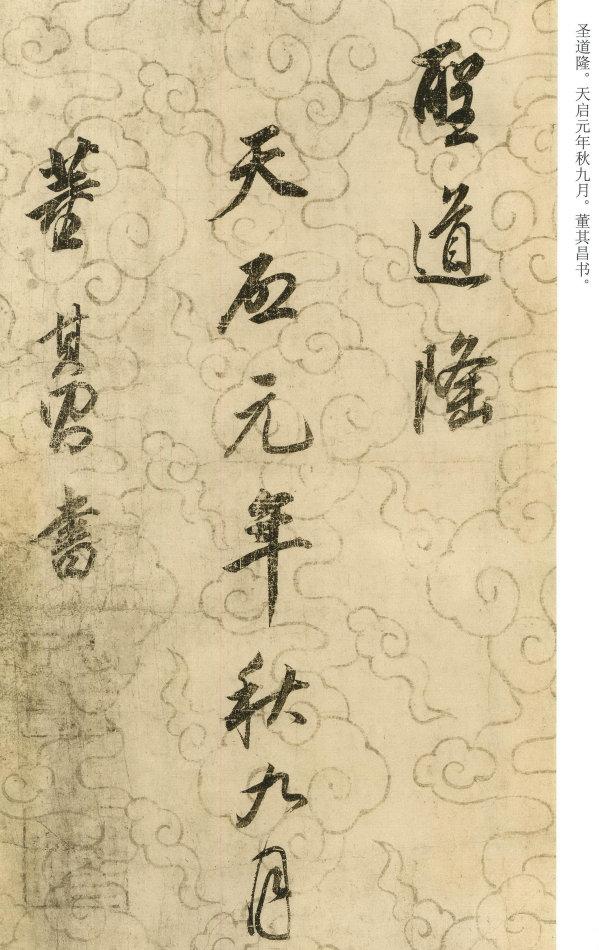 聖道隆
天啟元年秋九月
董其昌書
圣道隆。天启元年秋九月。董其昌书。